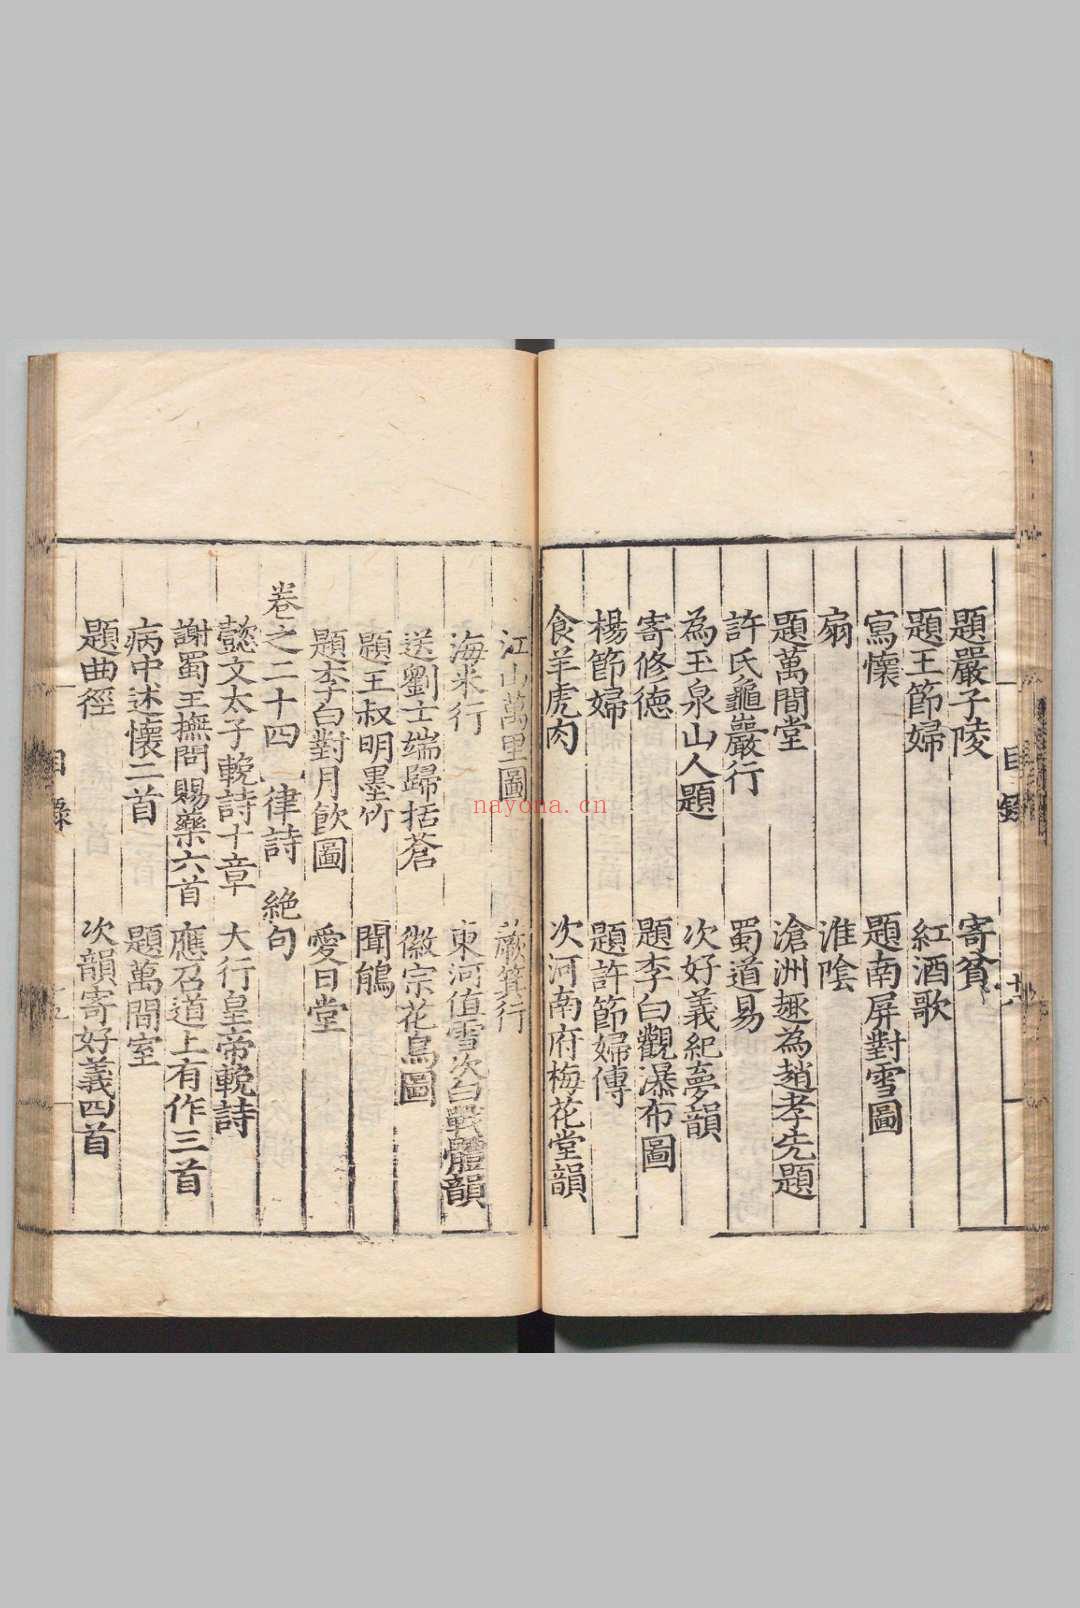 題嚴子陵　寄貧
題王節婦　紅酒歌
寫懷　題南屏對雪圖
扇　淮陰
題萬間堂　滄洲趣為趙孝先題
許氏龜巖行　蜀道易
為玉泉山人題　次好義紀夢韻
寄修德　題李白觀瀑布圖
楊節婦　題許節婦傳
食羊虎肉　次河南府梅花堂韻
江山萬里圖　蕨箕行
海米行　東河值雪次白戰體韻
送劉士端歸括蒼　徽宗花鳥圖
題王叔明墨竹　聞鵃
題李白對月飲圖　愛日堂
卷之二十四　律詩　絕句
懿文太子輓詩十章　大行皇帝輓詩
謝蜀王撫問賜藥六首　應召道上有作三首
病中述懷二首　題萬間室
題曲徑　次韻寄好義四首
目錄
nayona.cn